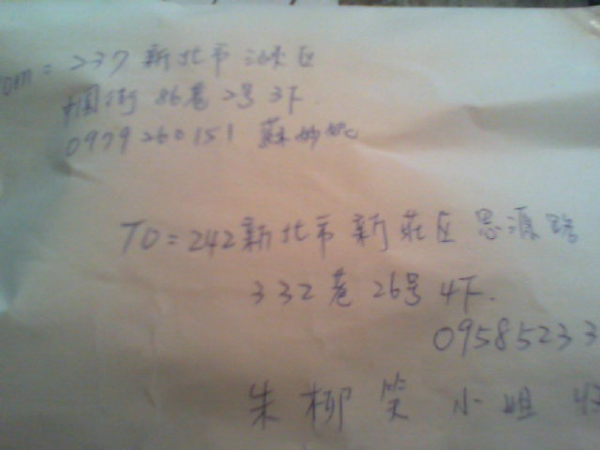 om = 237 新北市三峡区
街 86巷 2号 3F
0979260151 蘇
TO = 242 新北市 新莊区 思源路
332 巷 26号 4F.
09585233
朱柳笑 小姐